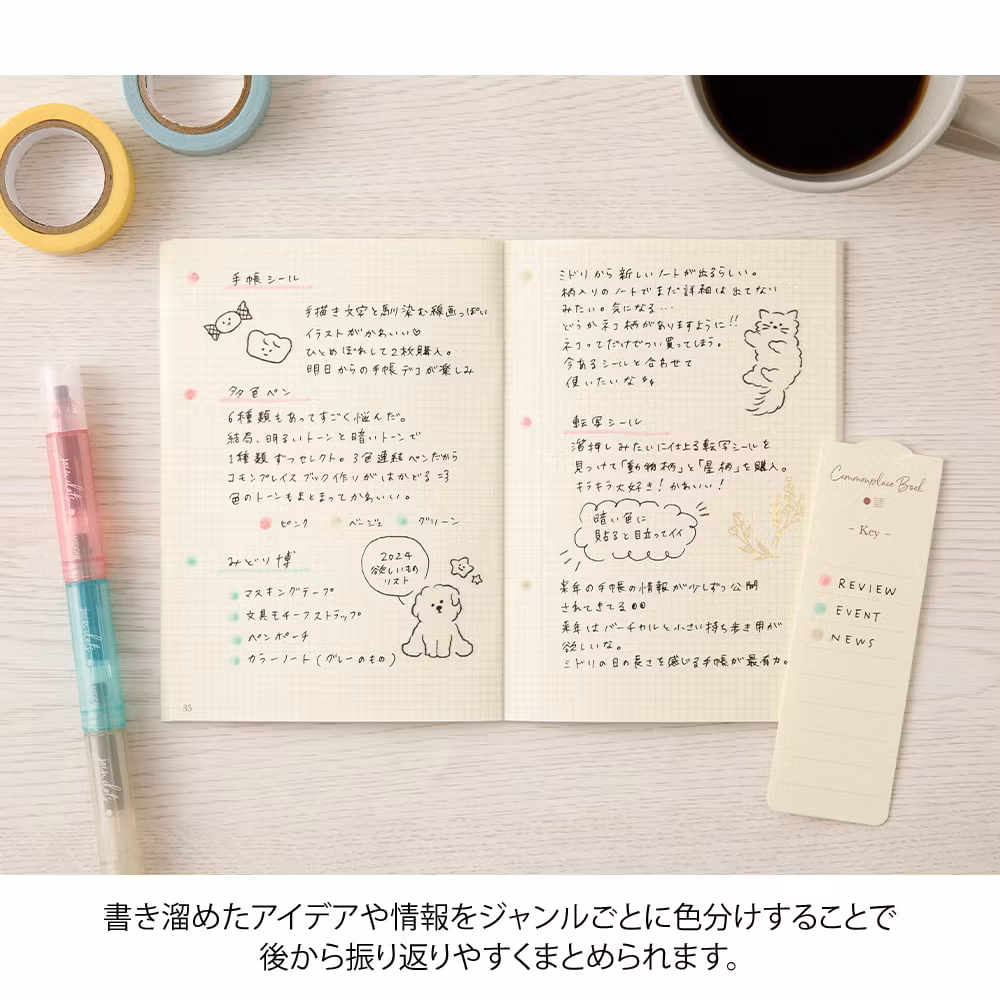 手帳シール
手描き文字と馴染む線画っぽい
イラストがかわいい♡
ひとめぼれして2枚購入。
明日からの手帳デコが楽しみ
多色ペン
6種類もあってすごく悩んだ。
結局、明るいトーンと暗いトーンで
1種類ずつセレクト。3色連結ペンだから
コモンプレイスブック作りがはかどる
色のトーンもまとまってかわいい。
ピンク ベージュ グリーン
みどり博
マスキングテープ
文具モチーフストラップ
ペンポーチ
カラーノート(グレーのもの)
2024
欲しいもの
リスト
35
ミドリから新しいノートが出るらしい。
柄入りのノートでまだ詳細は出てない
みたい。気になる…
どうかネコ柄がありますように!!
ネコってだけでつい買ってしまう。
今あるシールと合わせて
使いたいな
転写シール
箔押しみたいに仕上る転写シールを
見つけて「動物柄」と「星柄」を購入。
キラキラ大好き!かわいい!
暗い色に
貼ると目立ってイイ
来年の手帳の情報が少しずつ公開
されてきてる
来年はバーチカルと小さい持ち歩き用が
欲しいな。
ミドリの日の長さを感じる手帳が最有力。
Commonplace Book
- Key -
REVIEW
EVENT
NEWS
書き溜めたアイデアや情報をジャンルごとに色分けすることで
後から振り返りやすくまとめられます。